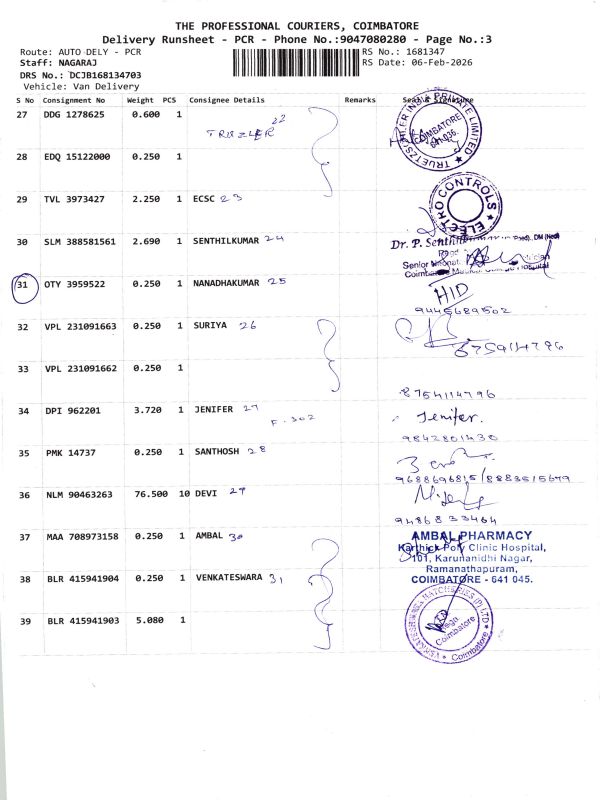 THE PROFESSIONAL COURIERS, COIMBATORE
Delivery Runsheet - PCR - Phone No.:9047080280 - Page No.:3
Route: AUTO DELY - PCR
RS No.: 1681347
Staff: NAGARAJ
RS Date: 06-Feb-2026
DRS No.: DCJB168134703
Vehicle: Van Delivery
S No Consignment No Weight PCS Consignee Details Remarks
27 DDG 1278625 0.600 1
22
28 EDQ 15122000 0.250 1
COIMBATORE
641 036.
29 TVL 3973427 2.250 1 ECSC 23
ELECTRO CONTROLS
30 SLM 388581561 2.690 1 SENTHILKUMAR 24
Dr. P.
Senior
Hospital
31 OTY 3959522 0.250 1 NANADHAKUMAR 25
HID
9445689502
32 VPL 231091663 0.250 1 SURIYA 26
8754114796
33 VPL 231091662 0.250 1
8754114796
34 DPI 962201 3.720 1 JENIFER 27
F-302
Jenifer.
9842801430
35 PMK 14737 0.250 1 SANTHOSH 28
9688696815/8883515679
36 NLM 90463263 76.500 10 DEVI 29
9486833464
37 MAA 708973158 0.250 1 AMBAL 30
AMBAL PHARMACY
Karthick Poly Clinic Hospital,
101, Karunanidhi Nagar,
Ramanathapuram,
COIMBATORE - 641 045.
38 BLR 415941904 0.250 1 VENKATESWARA 31
39 BLR 415941903 5.080 1
Coimbatore